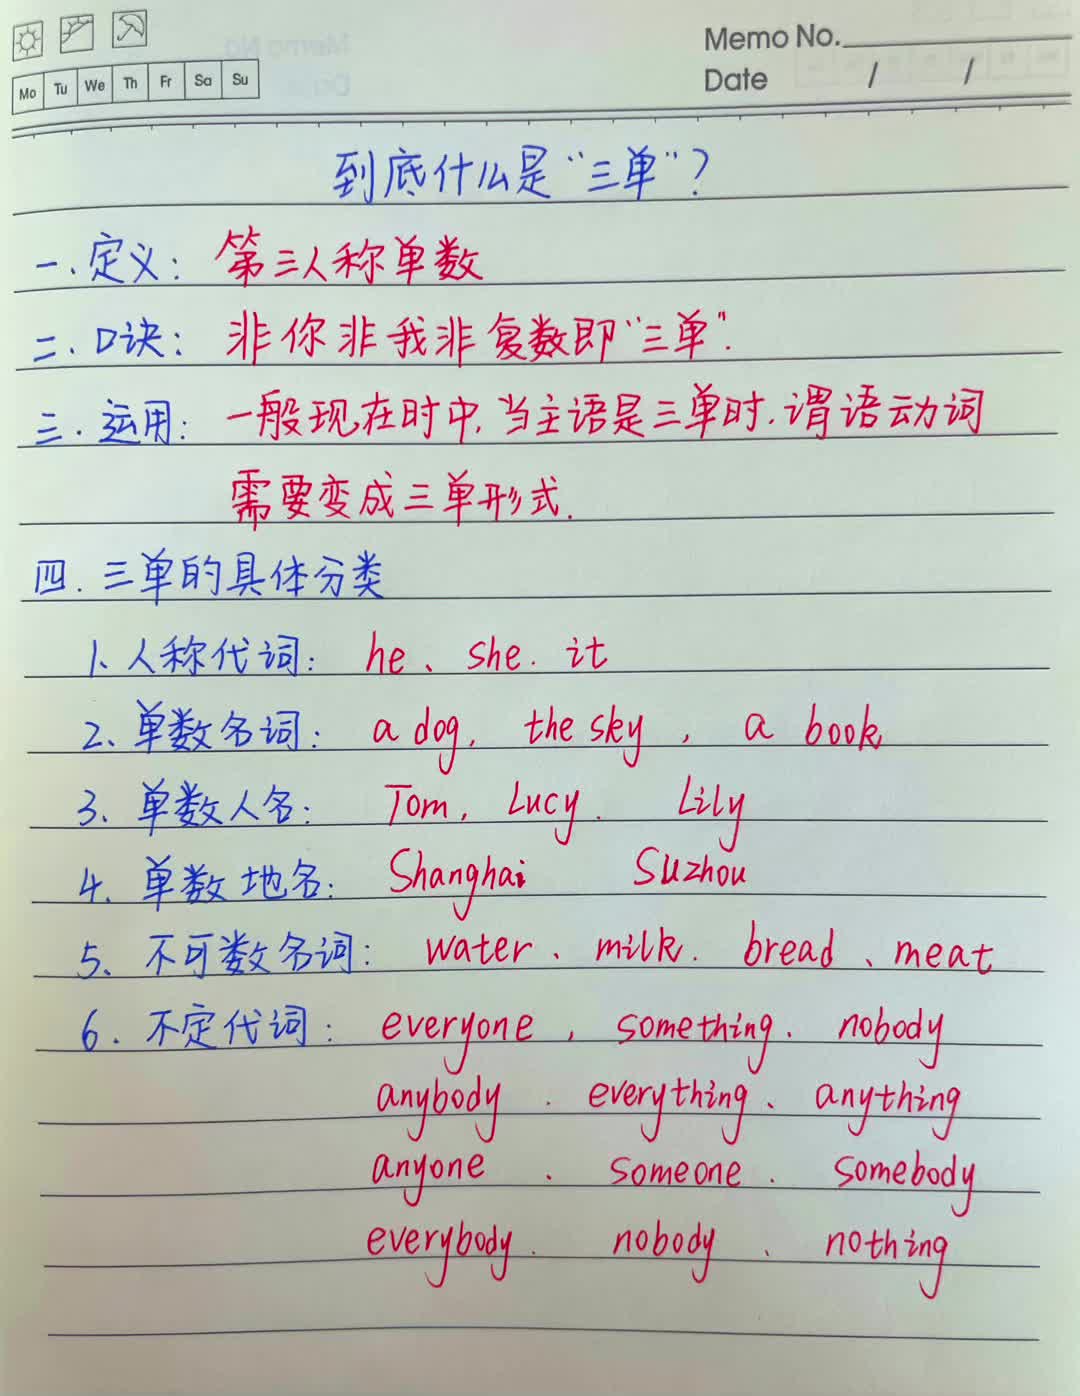 Memo No.
Mo Tu We Th Fr Sa Su
Date / /
到底什么是“三单”？
一、定义：第三人称单数
二、口诀：非你非我非复数即“三单”.
三.运用：一般现在时中,当主语是三单时.谓语动词
需要变成三单形式.
四.三单的具体分类
1、人称代词：he、she. it
2、单数名词：a dog, the sky , a book
3、单数人名：Tom, Lucy. Lily
4、单数地名：Shanghai Suzhou
5、不可数名词：water、milk. bread、meat
6.不定代词：everyone, something. nobody
anybody . everything、anything
anyone . someone. somebody
everybody. nobody 、nothing